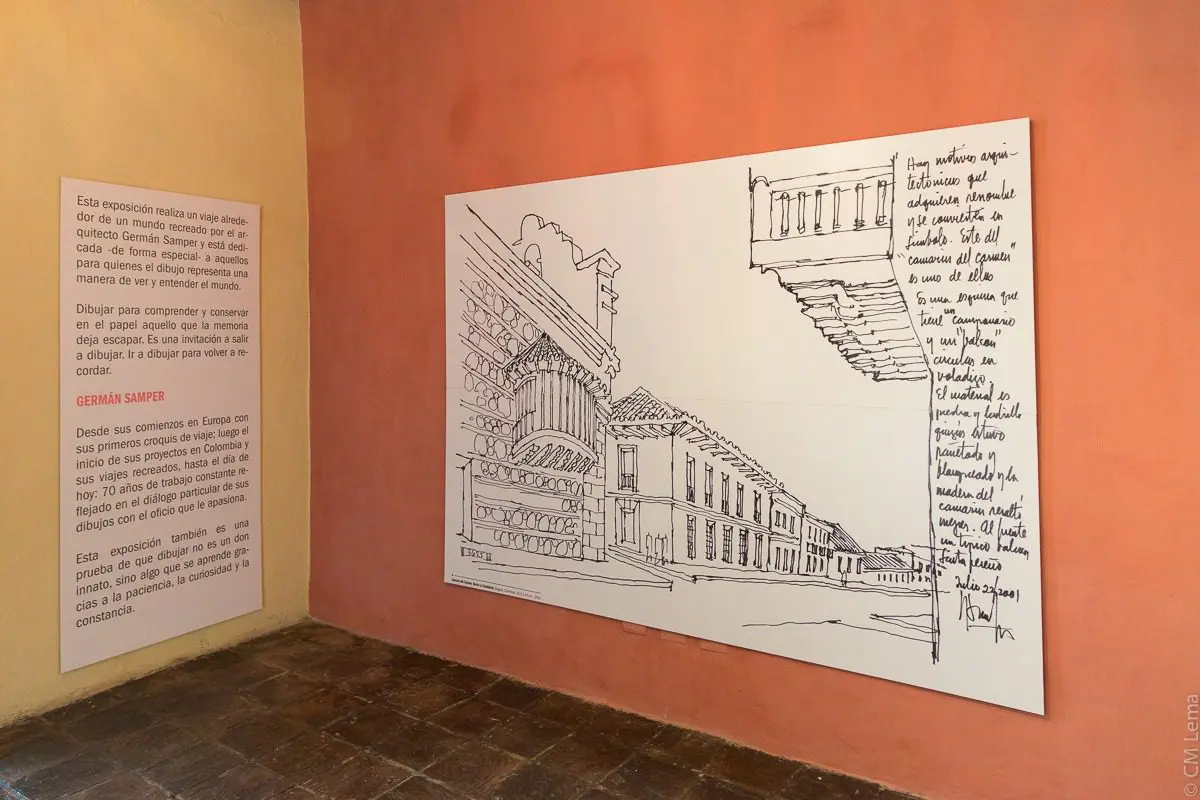 Esta exposición realiza un viaje alrede-
dor de un mundo recreado por el ar-
quitecto Germán Samper y está dedi-
cada -de forma especial- a aquellos
para quienes el dibujo representa una
manera de ver y entender el mundo.
Dibujar para comprender y conservar
en el papel aquello que la memoria
deja escapar. Es una invitación a salir
a dibujar. Ir a dibujar para volver a re-
cordar.
GERMÁN SAMPER
Desde sus comienzos en Europa con
sus primeros croquis de viaje; luego el
inicio de sus proyectos en Colombia y
sus viajes recreados, hasta el día de
hoy: 70 años de trabajo constante re-
flejado en el diálogo particular de sus
dibujos con el oficio que le apasiona.
Esta exposición también es una
prueba de que dibujar no es un don
innato, sino algo que se aprende gra-
cias a la paciencia, la curiosidad y la
constancia.
Hay motivos arqui-
tectónicos que
adquieren renombre
y se convierten en
símbolo. Este del
"camarín del carmen"
es uno de ellos
Es una esquina que
tiene un campanario
y un "balcón"
circular en
voladizo.
El material es
piedra y ladrillo
quizás estuvo
pañetado y
blanqueado y la
madera del
camarín resaltó
mejor. Al frente
un típico balcón
santafereño
Julio 22/2001
© CM Lema